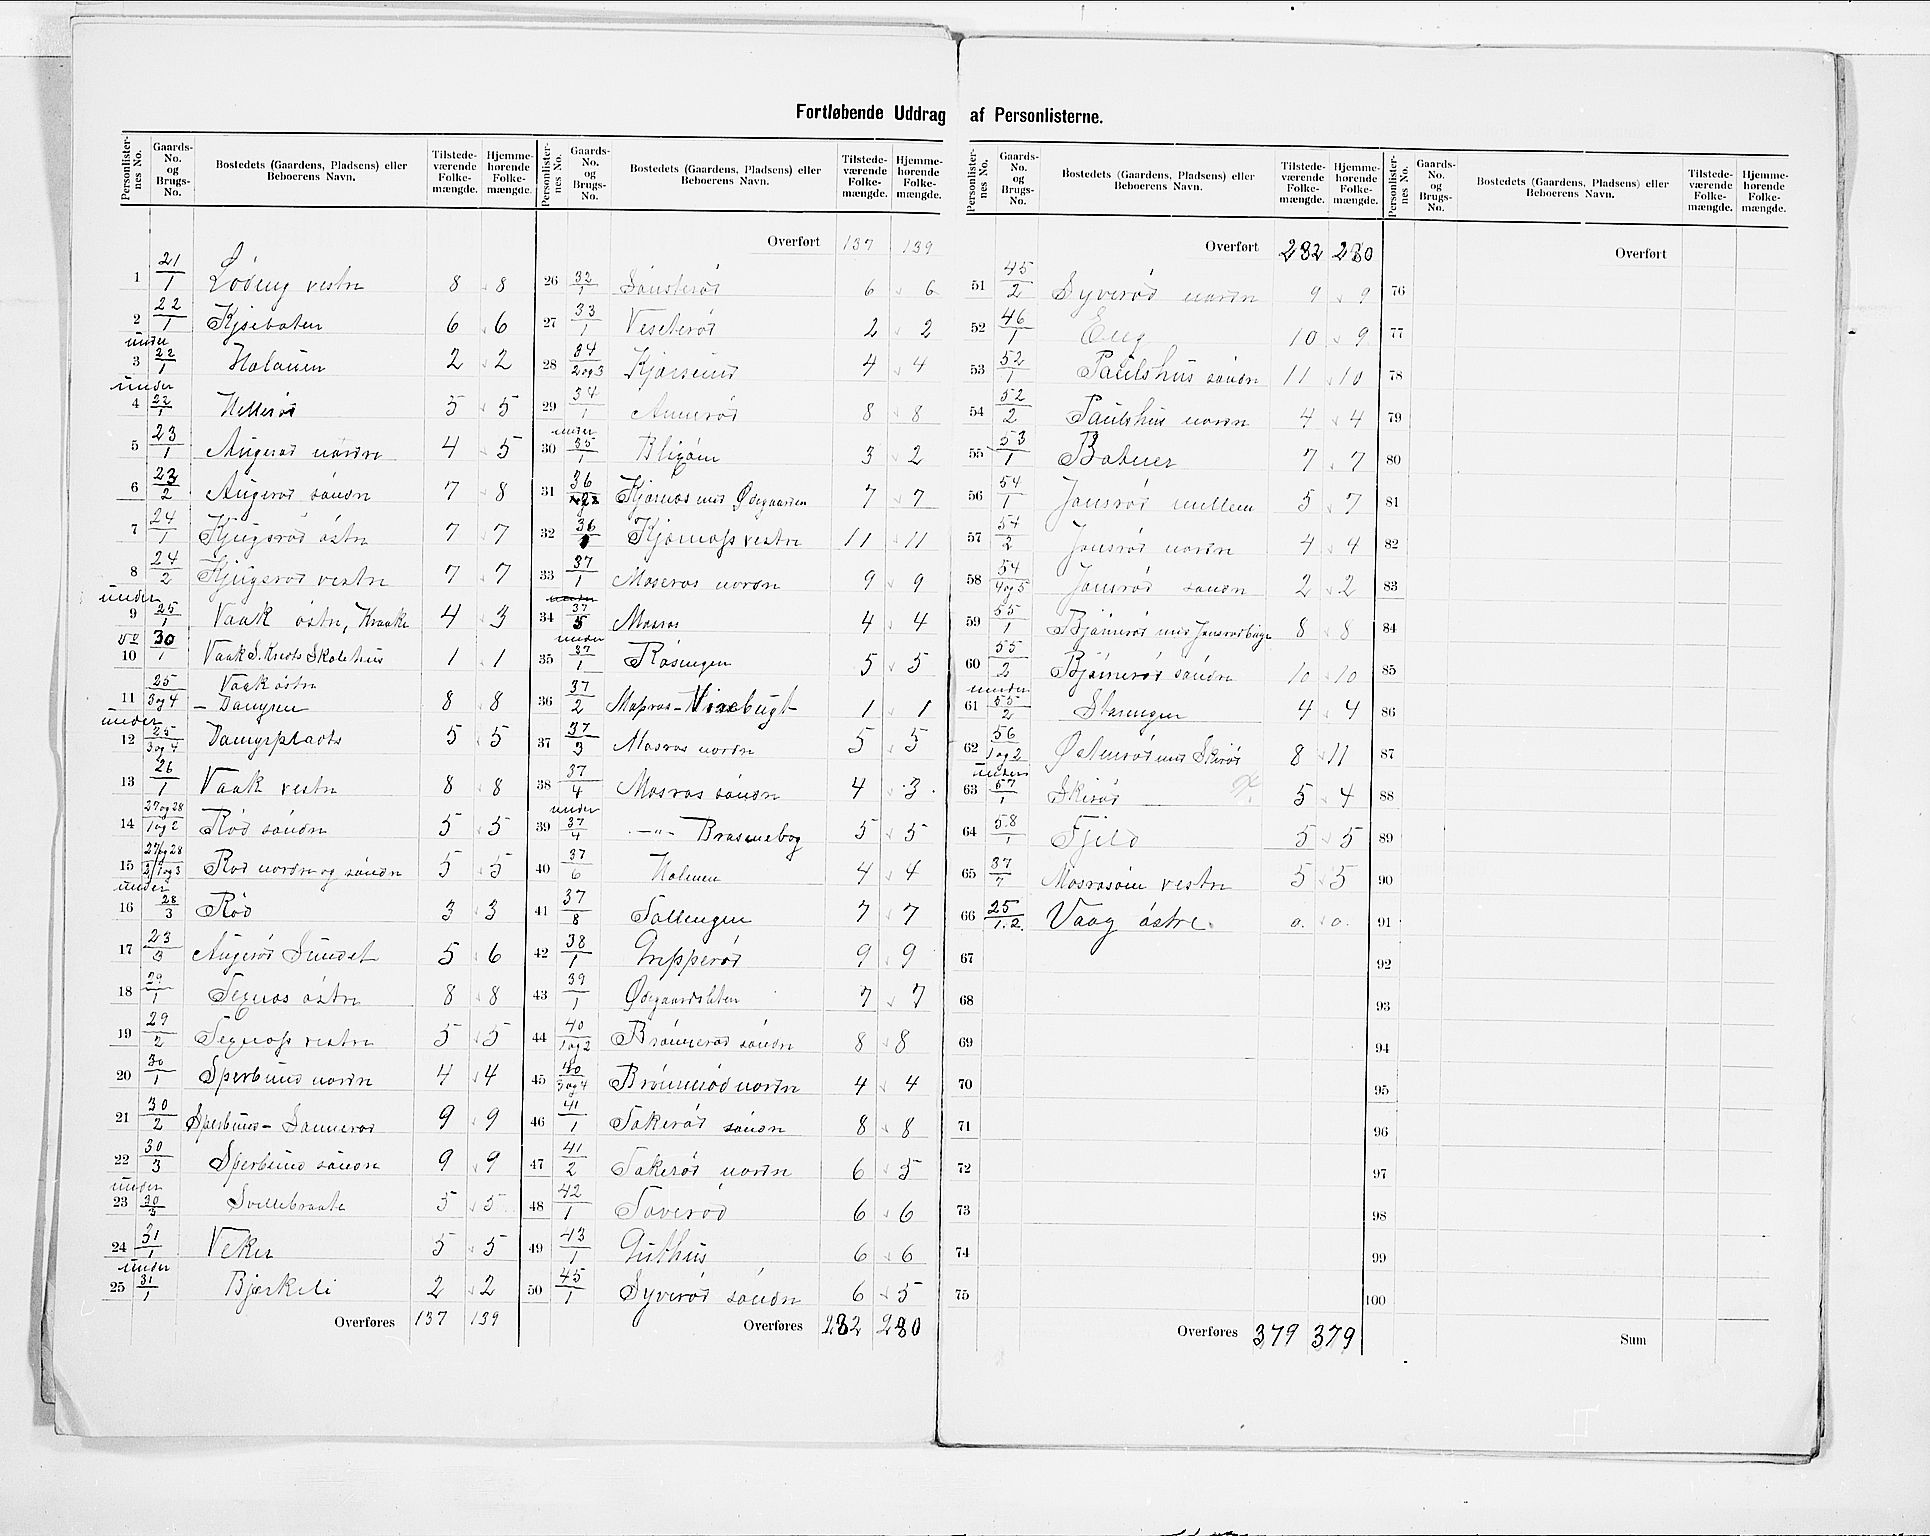 Fortløbende Uddrag af Personlisterne.
Personlister-nes No. | Gaards-No. og Brugs-No. | Bostedets (Gaardens, Pladsens) eller Beboerens Navn. | Tilstede-værende Folke-mængde. | Hjemme-hørende Folke-mængde.
1 21/1 Löding vestre 8 8
2 22/1 Kjsebaten 6 6
3 under 22/1 Holauen 2 2
4 under 22/1 Hellerös 5 5
5 23/1 Augerød nordre 4 5
6 23/2 Augerød söndre 7 8
7 24/1 Kjugerød östre 7 7
8 24/2 Kjugerød vestre 7 7
9 under 25/1 Vaak östre, Kraake 4 3
10 30/1 Vaak S. Kreds Skolehus 1 1
11 25/3og4 Vaak östre - Damyren 8 8
12 under 25/3og4 Damyrplads 5 5
13 26/1 Vaak vestre 8 8
14 27og28/1og2 Röd söndre 5 5
15 27og28/2/1og3 Röd nordre og söndre 5 5
16 under 28/3 Röd 3 3
17 23/3 Augerød Sundet 5 6
18 29/1 Tegnæs östre 8 8
19 29/2 Tegnæs vestre 5 5
20 30/1 Sperbund nordre 4 4
21 30/2 Sperbund - Sannerød 9 9
22 30/3 Sperbund söndre 9 9
23 under 30/3 Svellebraate 5 5
24 31/1 Veker 5 5
25 under 31/1 Bjerkeli 2 2
Overføres 137 139
Personlister-nes No. | Gaards-No. og Brugs-No. | Bostedets (Gaardens, Pladsens) eller Beboerens Navn. | Tilstede-værende Folke-mængde. | Hjemme-hørende Folke-mængde.
Overført 137 139
26 32/1 Sönsteröd 6 6
27 33/1 Veseteröd 2 2
28 34/2og3 Kjærsund 4 4
29 34/1 Anneröd 8 8
30 under 35/1 3 2
31 36 Kjærnæs med Ødegaarden 7 7
32 36 Kjærnæs vestre 11 11
33 37/1 Mosenæs nordre 9 9
34 37/5 Mosnæs 4 4
35 under 37/1 Rösingen 5 5
36 37/2 Mosnæs - Vinebugt 1 1
37 37/3 Mosnæs nordre 5 5
38 37/4 Mosnæs söndre 4 3
39 under 37/4 -"- Brasmebog 5 5
40 37/6 Holmen 4 4
41 37/8 Tallengen 7 7
42 38/1 Gripperöd 9 9
43 39/1 Ødegaardsleten 7 7
44 40/1og2 Brönneröd söndre 8 8
45 40/3og4 Brönneröd nordre 4 4
46 41/1 Takeröd söndre 8 8
47 41/2 Takeröd nordre 6 5
48 42/1 Taveröd 6 6
49 43/1 Guthus 6 6
50 45/1 Syveröd söndre 6 5
Overføres 282 280
Personlister-nes No. | Gaards-No. og Brugs-No. | Bostedets (Gaardens, Pladsens) eller Beboerens Navn. | Tilstede-værende Folke-mængde. | Hjemme-hørende Folke-mængde.
Overført 282 280
51 45/2 Syveröd nordre 9 9
52 46/1 Eng 10 9
53 52/1 Paulshus söndre 11 10
54 52/2 Paulshus nordre 4 4
55 53/1 Botner 7 7
56 54/1 Jonsröd mellem 5 7
57 54/2 Jonsröd nordre 4 4
58 54/4og5 Jonsröd söndre 2 2
59 55/1 Björneröd med Jonsrödbugen 8 8
60 55/2 Björneröd söndre 10 10
61 under 55/2 Staringen 4 4
62 56/1og2 Østenröd med Skiröd 8 11
63 under 57/1 Skiröd 5 4
64 58/1 Fjeld 5 5
65 37/7 Mosnæsöen vestre 5 5
66 25/1.2. Vaag östre. 0. 0.
67
68
69
70
71
72
73
74
75
Overføres 379 379
Personlister-nes No. | Gaards-No. og Brugs-No. | Bostedets (Gaardens, Pladsens) eller Beboerens Navn. | Tilstede-værende Folke-mængde. | Hjemme-hørende Folke-mængde.
Overført
76
77
78
79
80
81
82
83
84
85
86
87
88
89
90
91
92
93
94
95
96
97
98
99
100
Sum